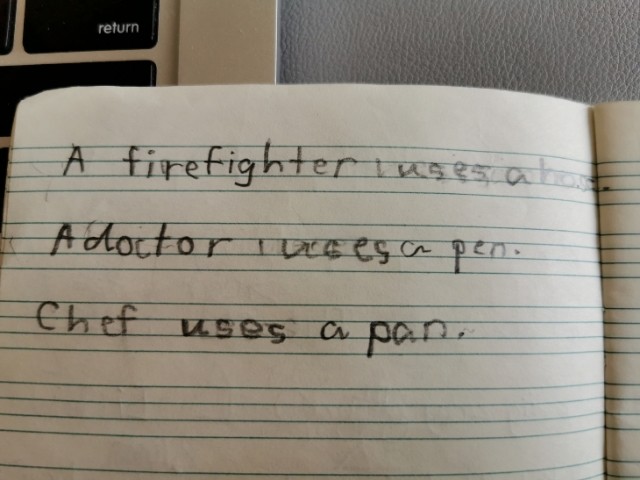 return
A firefighter uses a
A doctor uses a pen.
Chef uses a pan.